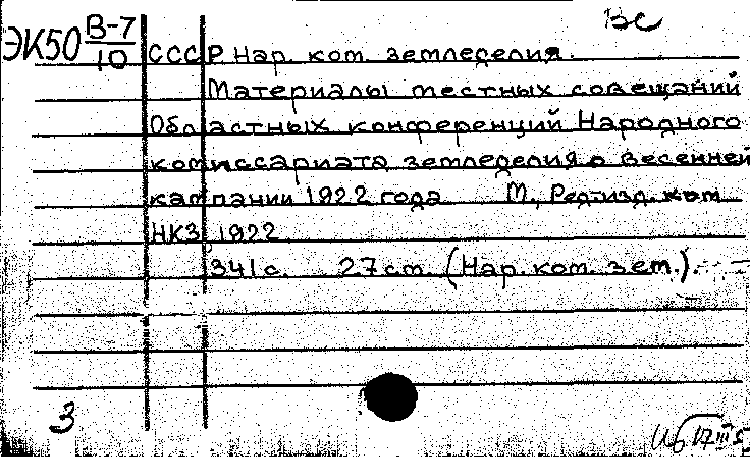 Вс
ЭК50 В-7/10 СССР Нар. ком. земледелия.
Материалы местных совещаний
Областных конференций Народного
комиссариата земледелия о весенней
кампании 1922 года М., Ред-изд. ком
НКЗ, 1922
341 с. 27 см. (Нар. ком. зем.).
3